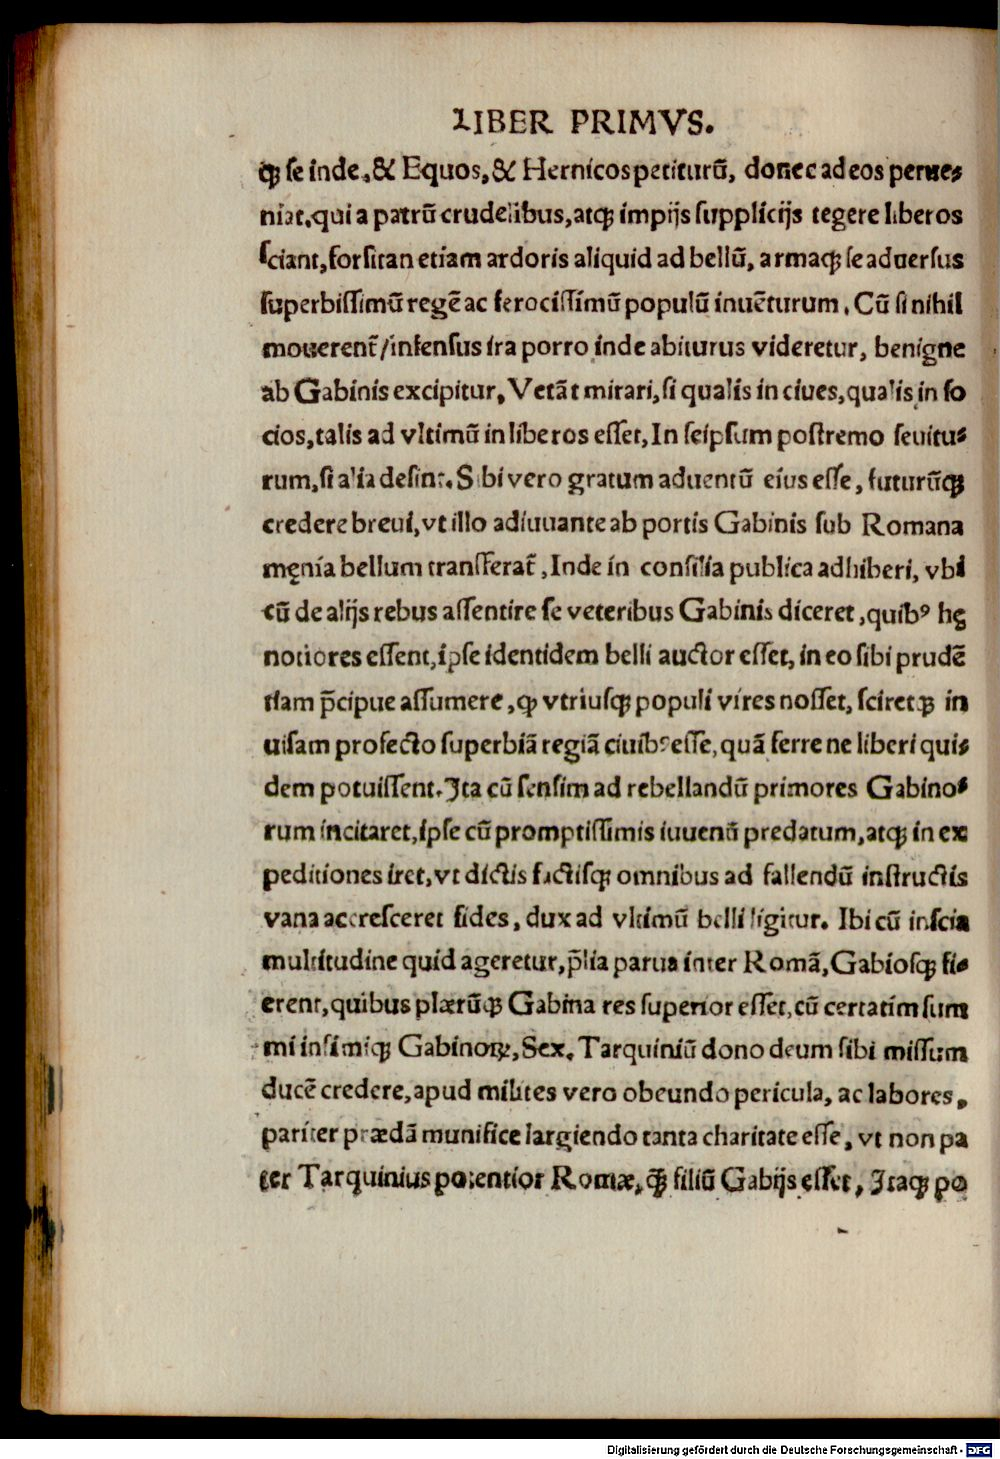 LIBER PRIMVS.
qꝫ se inde, & Equos, & Hernicos petiturū, donec ad eos perue⸗
niat, qui a patrū crudelibus, atqꝫ impijs supplicijs tegere liberos
sciant, forsitan etiam ardoris aliquid ad bellū, armaqꝫ se aduersus
superbissimū regē ac ferocissimū populū inuēturum. Cū si nihil
mouerent̃/infensus ira porro inde abiturus videretur, benigne
ab Gabinis excipitur, Vetāt mirari, si qualis in ciues, qualis in so
cios, talis ad vltimū in liberos esset, In seipsum postremo seuitu⸗
rum, si alia desint. Sibi vero gratum aduentū eius esse, futurūqꝫ
credere breui, vt illo adiuuante ab portis Gabinis sub Romana
męnia bellum transferat̃, Inde in consilia publica adhiberi, vbi
cū de alijs rebus assentire se veteribus Gabinis diceret, quibꝰ hę
notiores essent, ipse identidem belli auctor esset, in eo sibi prudē
tiam p̄cipue assumere, ꝙ vtriusqꝫ populi vires nosset, sciretqꝫ in
uisam profecto superbiā regiā ciuibꝰ esse, quā ferre ne liberi qui⸗
dem potuissent. Ita cū sensim ad rebellandū primores Gabino⸗
rum incitaret, ipse cū promptissimis iuuenū predatum, atqꝫ in ex
peditiones iret, vt dictis factisqꝫ omnibus ad fallendū instructis
vana accresceret fides, dux ad vltimū belli ligitur. Ibi cū inscia
multitudine quid ageretur, p̄lia parua inter Romā, Gabiosqꝫ fi⸗
erent, quibus plærūqꝫ Gabina res superior esset, cū certatim sum
mi infimiqꝫ Gabinoꝝ, Sex. Tarquiniū dono deum sibi missum
ducē credere, apud milites vero obeundo pericula, ac labores,
pariter prædā munifice largiendo tanta charitate esse, vt non pa
ter Tarquinius potentior Romæ, qꝫ̄ filiū Gabijs esset, Itaqꝫ po
Digitalisierung gefördert durch die Deutsche Forschungsgemeinschaft - DFG